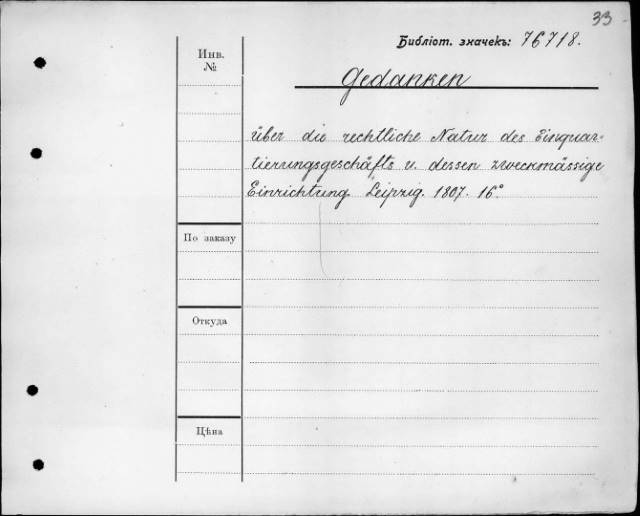 33
Библіот. значекъ: 76718.
Инв.
№
Gedanken
über die rechtliche Natur des Einquar-
tierungsgeschäfts u. dessen zweckmässige
Einrichtung Leipzig. 1807. 16°
По заказу
Откуда
Цѣна